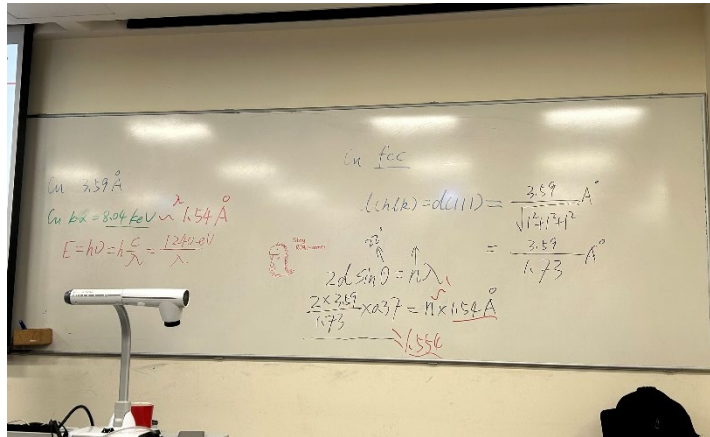 Cu 3.59 Å
Cu kα = 8.04 keV ~ λ 1.54 Å
E = hν = h c/λ = 1240 eV/λ
in fcc
d(111) = 3.59/√1²+1²+1² Å
= 3.59/1.73 Å
22°
2d sin θ = nλ
2×3.59/1.73 × 0.37 = n × 1.54 Å
1.554